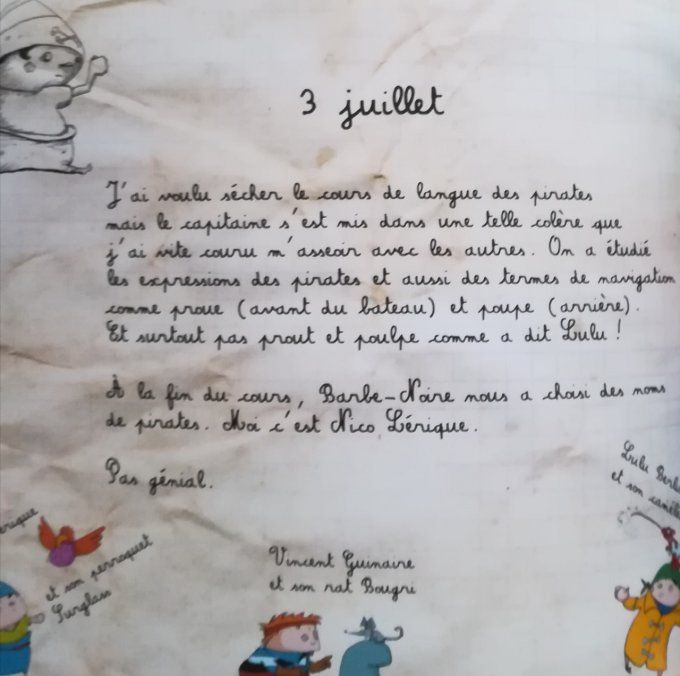 3 juillet
J'ai voulu sécher le cours de langue des pirates
mais le capitaine s'est mis dans une telle colère que
j'ai vite couru m'asseoir avec les autres. On a étudié
les expressions des pirates et aussi des termes de navigation
comme proue (avant du bateau) et poupe (arrière).
Et surtout pas prout et poulpe comme a dit Lulu !
À la fin du cours, Barbe-Noire nous a choisi des noms
de pirates. Moi c'est Nico Lérique.
Pas génial.
et son perroquet
Surglass
Vincent Guinaire
et son rat Bougri
Lulu
et son